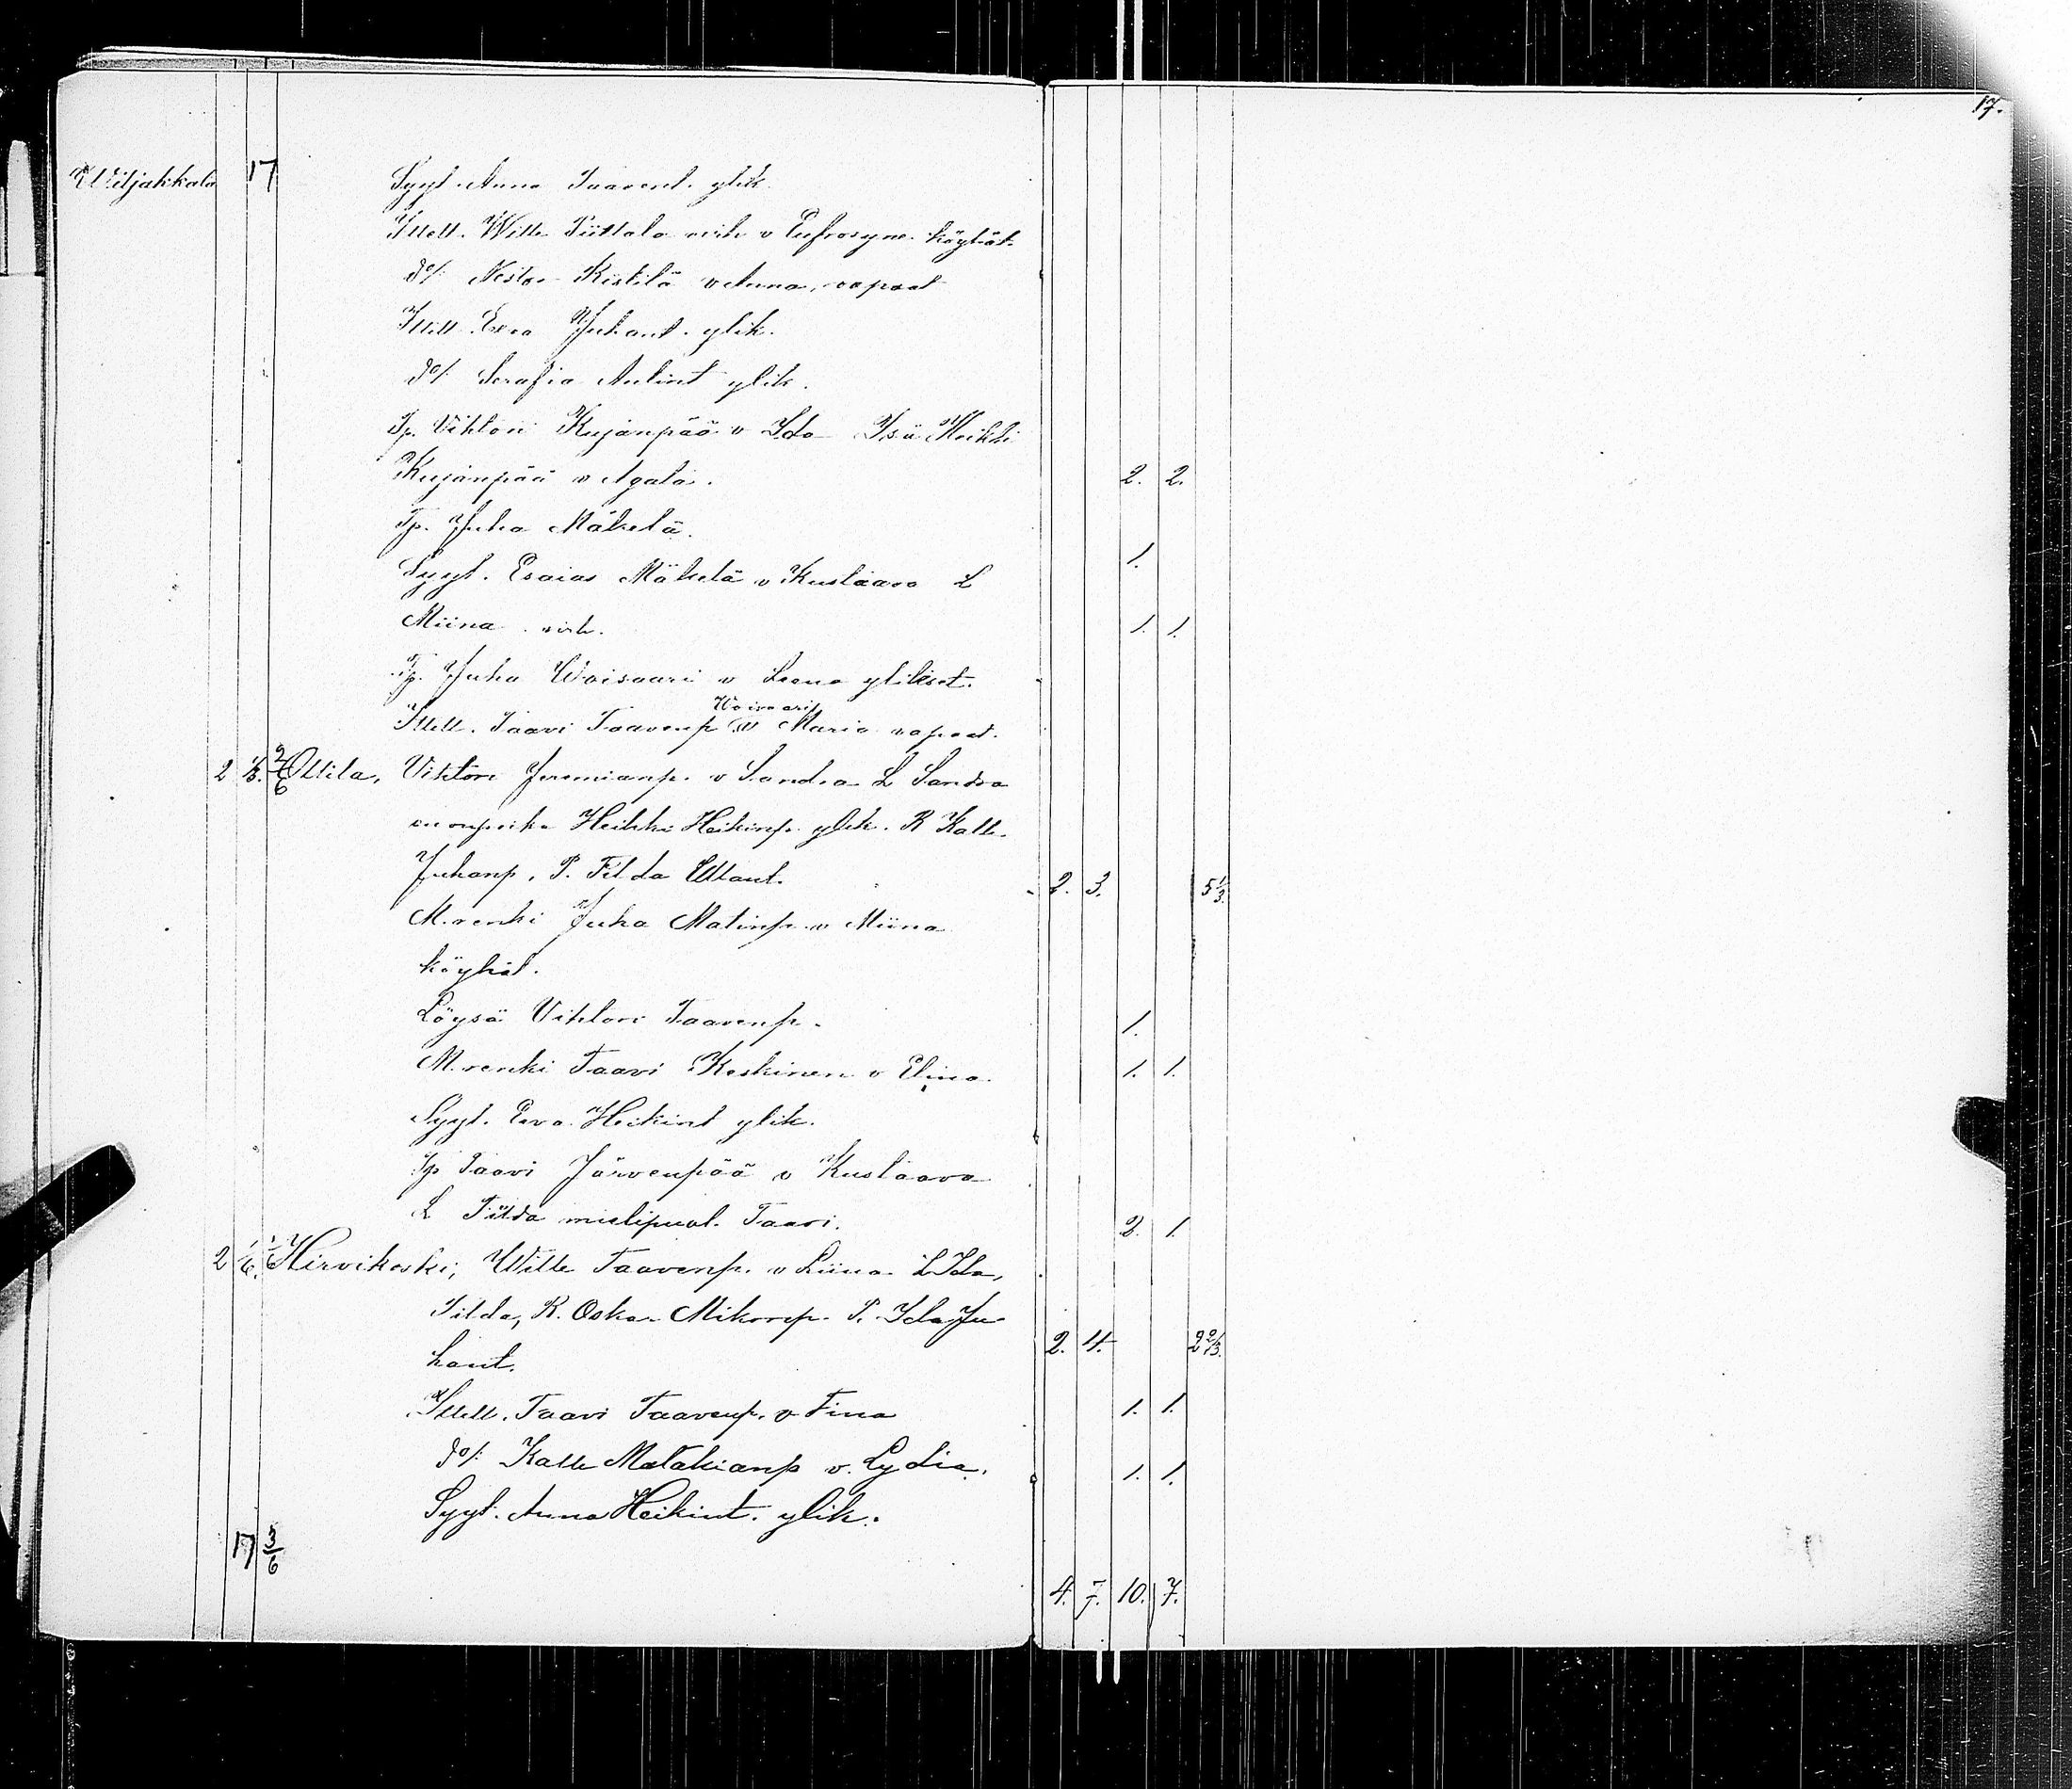 17.
Wiljakkala 17 Syyt. Anna Taavent. ylik.
Ittell. Wille Piittala virh v Eufrosyne. köyhät.
do/: Nestor Kistilä v Anna, vapaat
Itell. Eva Juhant. ylik.
do/: Serafia Antint ylik.
Tp. Vihtori Kujanpää v Ida Isä Heikki
Kujanpää v Agata. 2. 2.
Tp. Juha Mäkelä. 1.
Syyt. Esaias Mäkelä v Kustaava L
Miina virh. 1. 1.
Tp. Juha Woisaari v Leena ylikset.
Woisaari
Itell. Taavi Taavenp v Maria vapaat.
2 1/6. 2/6 Ollila, Vihtori Jeremianp. v Sandra L Sandra
Heikki Heikinp. ylik. R Kalle
Juhanp, P. Filda Ullant. 2. 3. 5 1/3.
M.renki Juha Matinp. v Miina
köyhät.
Löysä Vihtori Taavenp. 1.
M.renki Taavi Keskinen v Elina. 1. 1.
Syyt. Eva Heikint ylik.
Tp Taavi Järvenpää v Kustaava
L Tilda mielipuol. Taavi. 2. 1.
2 1/6. 1/6 Hirvikoski, Wille Taavenp. v Liina L Ida,
Tilda, R. Oskar Mikonp. P. Ida Ju-
hant. 2. 4. 2 2/3.
Itell. Taavi Taavenp. v Fina 1. 1.
do/: Kalle Malakianp v. Lydia. 1. 1.
Syyt. Anna Heikint. ylik.
17 3/6
4. 7. 10. 7.